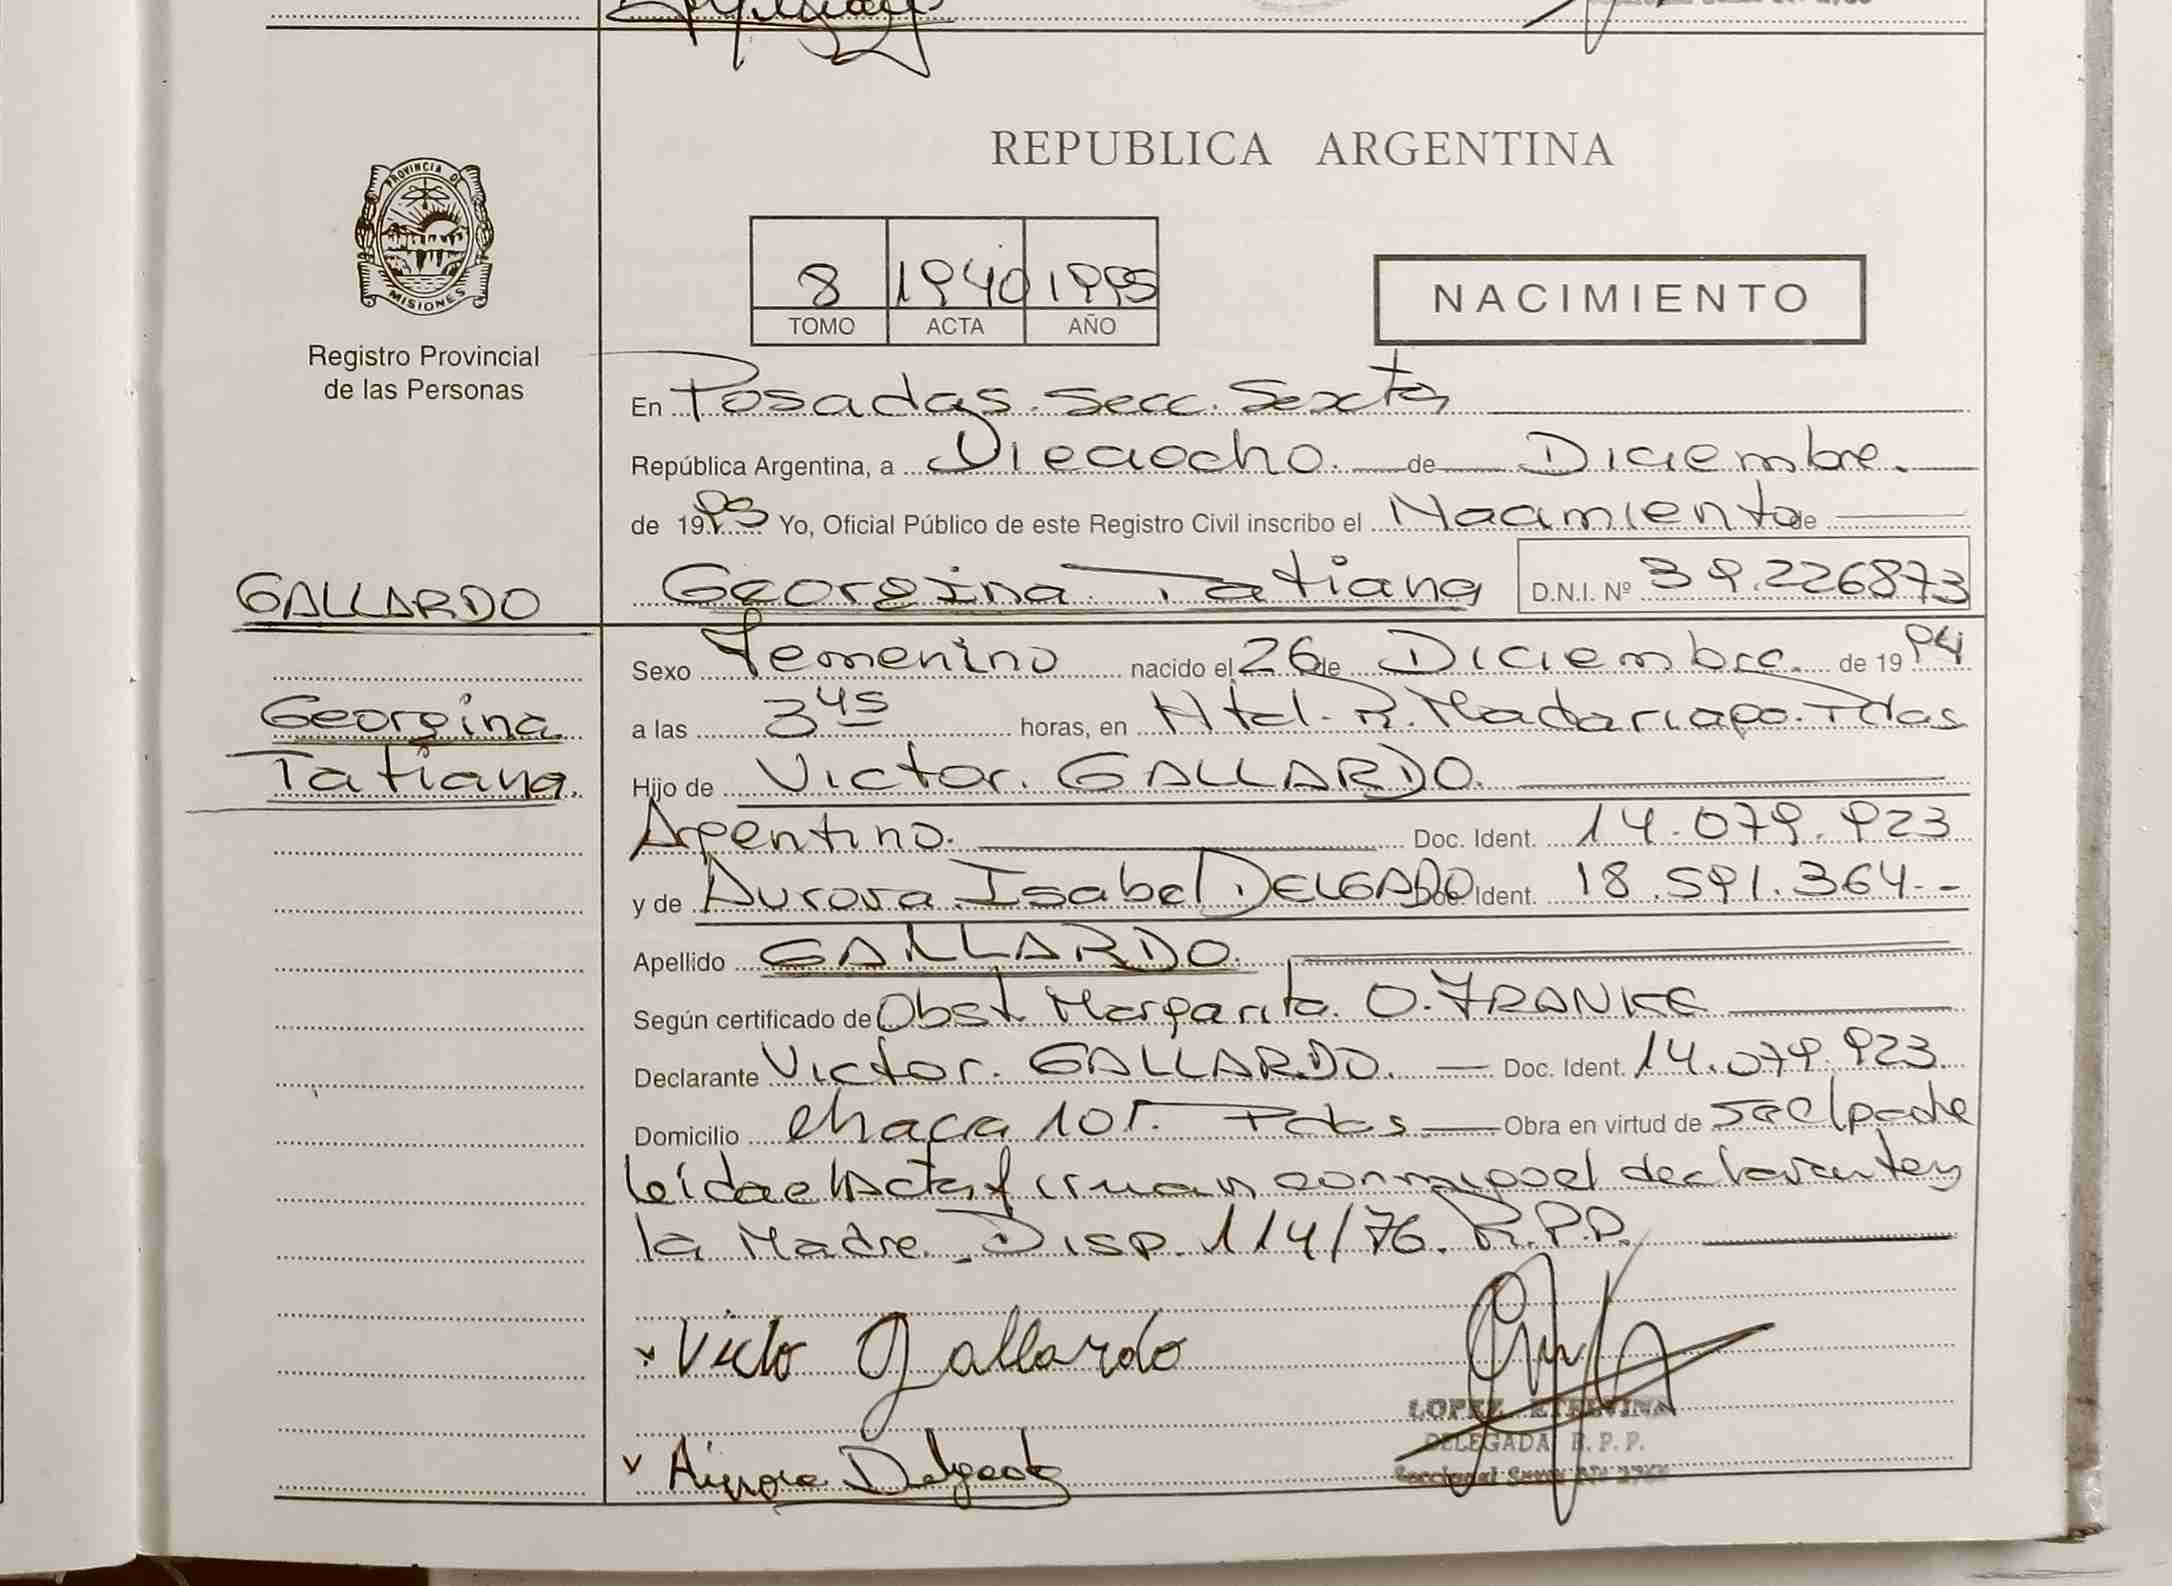 REPUBLICA ARGENTINA
PROVINCIA DE
MISIONES
Registro Provincial
de las Personas
8 1940 1995
TOMO ACTA AÑO
NACIMIENTO
En Posadas. Secc. Sexta
República Argentina, a Dieciocho. de Diciembre.
de 1995 Yo, Oficial Público de este Registro Civil inscribo el Nacimiento de
GALLARDO
Georgina Tatiana D.N.I. Nº 39.226873
Sexo Femenino nacido el 26 de Diciembre. de 1994
Georgina
a las 3 45 horas, en Htal. R. Madariaga. Pdas
Tatiana.
Hijo de Victor. GALLARDO.
Argentino. Doc. Ident. 14.079.923
y de Aurora Isabel DELGADO Doc. Ident. 18.591.364.-
Apellido GALLARDO.
Según certificado de Obst. Margarita. O. FRANKE
Declarante Victor. GALLARDO. Doc. Ident. 14.079.923
Domicilio Chacra 101. Pdas. Obra en virtud de Ser el padre
leída el Acta firman conmigo el declarante y
la Madre. Disp. 114/76. R.P.P.
x Victo Gallardo
LOPEZ ETELVINA
DELEGADA R. P. P.
v Aurora Delgado
Seccional